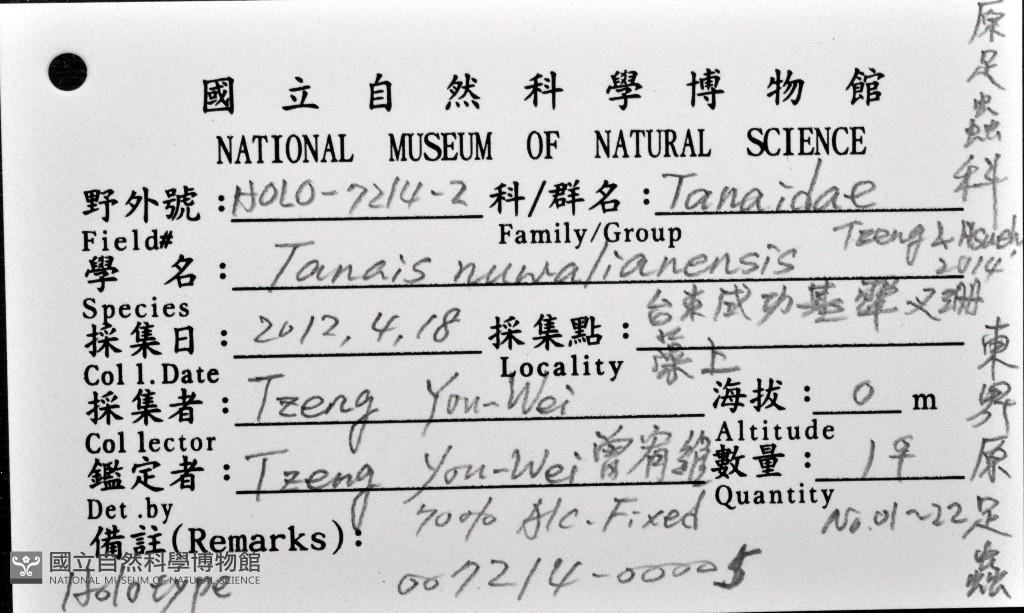 國立自然科學博物館
NATIONAL MUSEUM OF NATURAL SCIENCE
野外號：HOLO-7214-2 科/群名：Tanaidae
Field# Family/Group
學 名：Tanais nuwalianensis Tzeng & Hsueh, 2014
Species
採集日：2012.4.18 採集點：台東成功基翬叉珊藻上
Coll.Date Locality
採集者：Tzeng You-Wei 海拔：0 m
Collector Altitude
鑑定者：Tzeng You-Wei 曾宥維 數量：1♀
Det.by Quantity
70% Alc. Fixed No.01~22
備註(Remarks)：
Holotype 007214-00005
原足蟲科
東界原足蟲
國立自然科學博物館
NATIONAL MUSEUM OF NATURAL SCIENCE